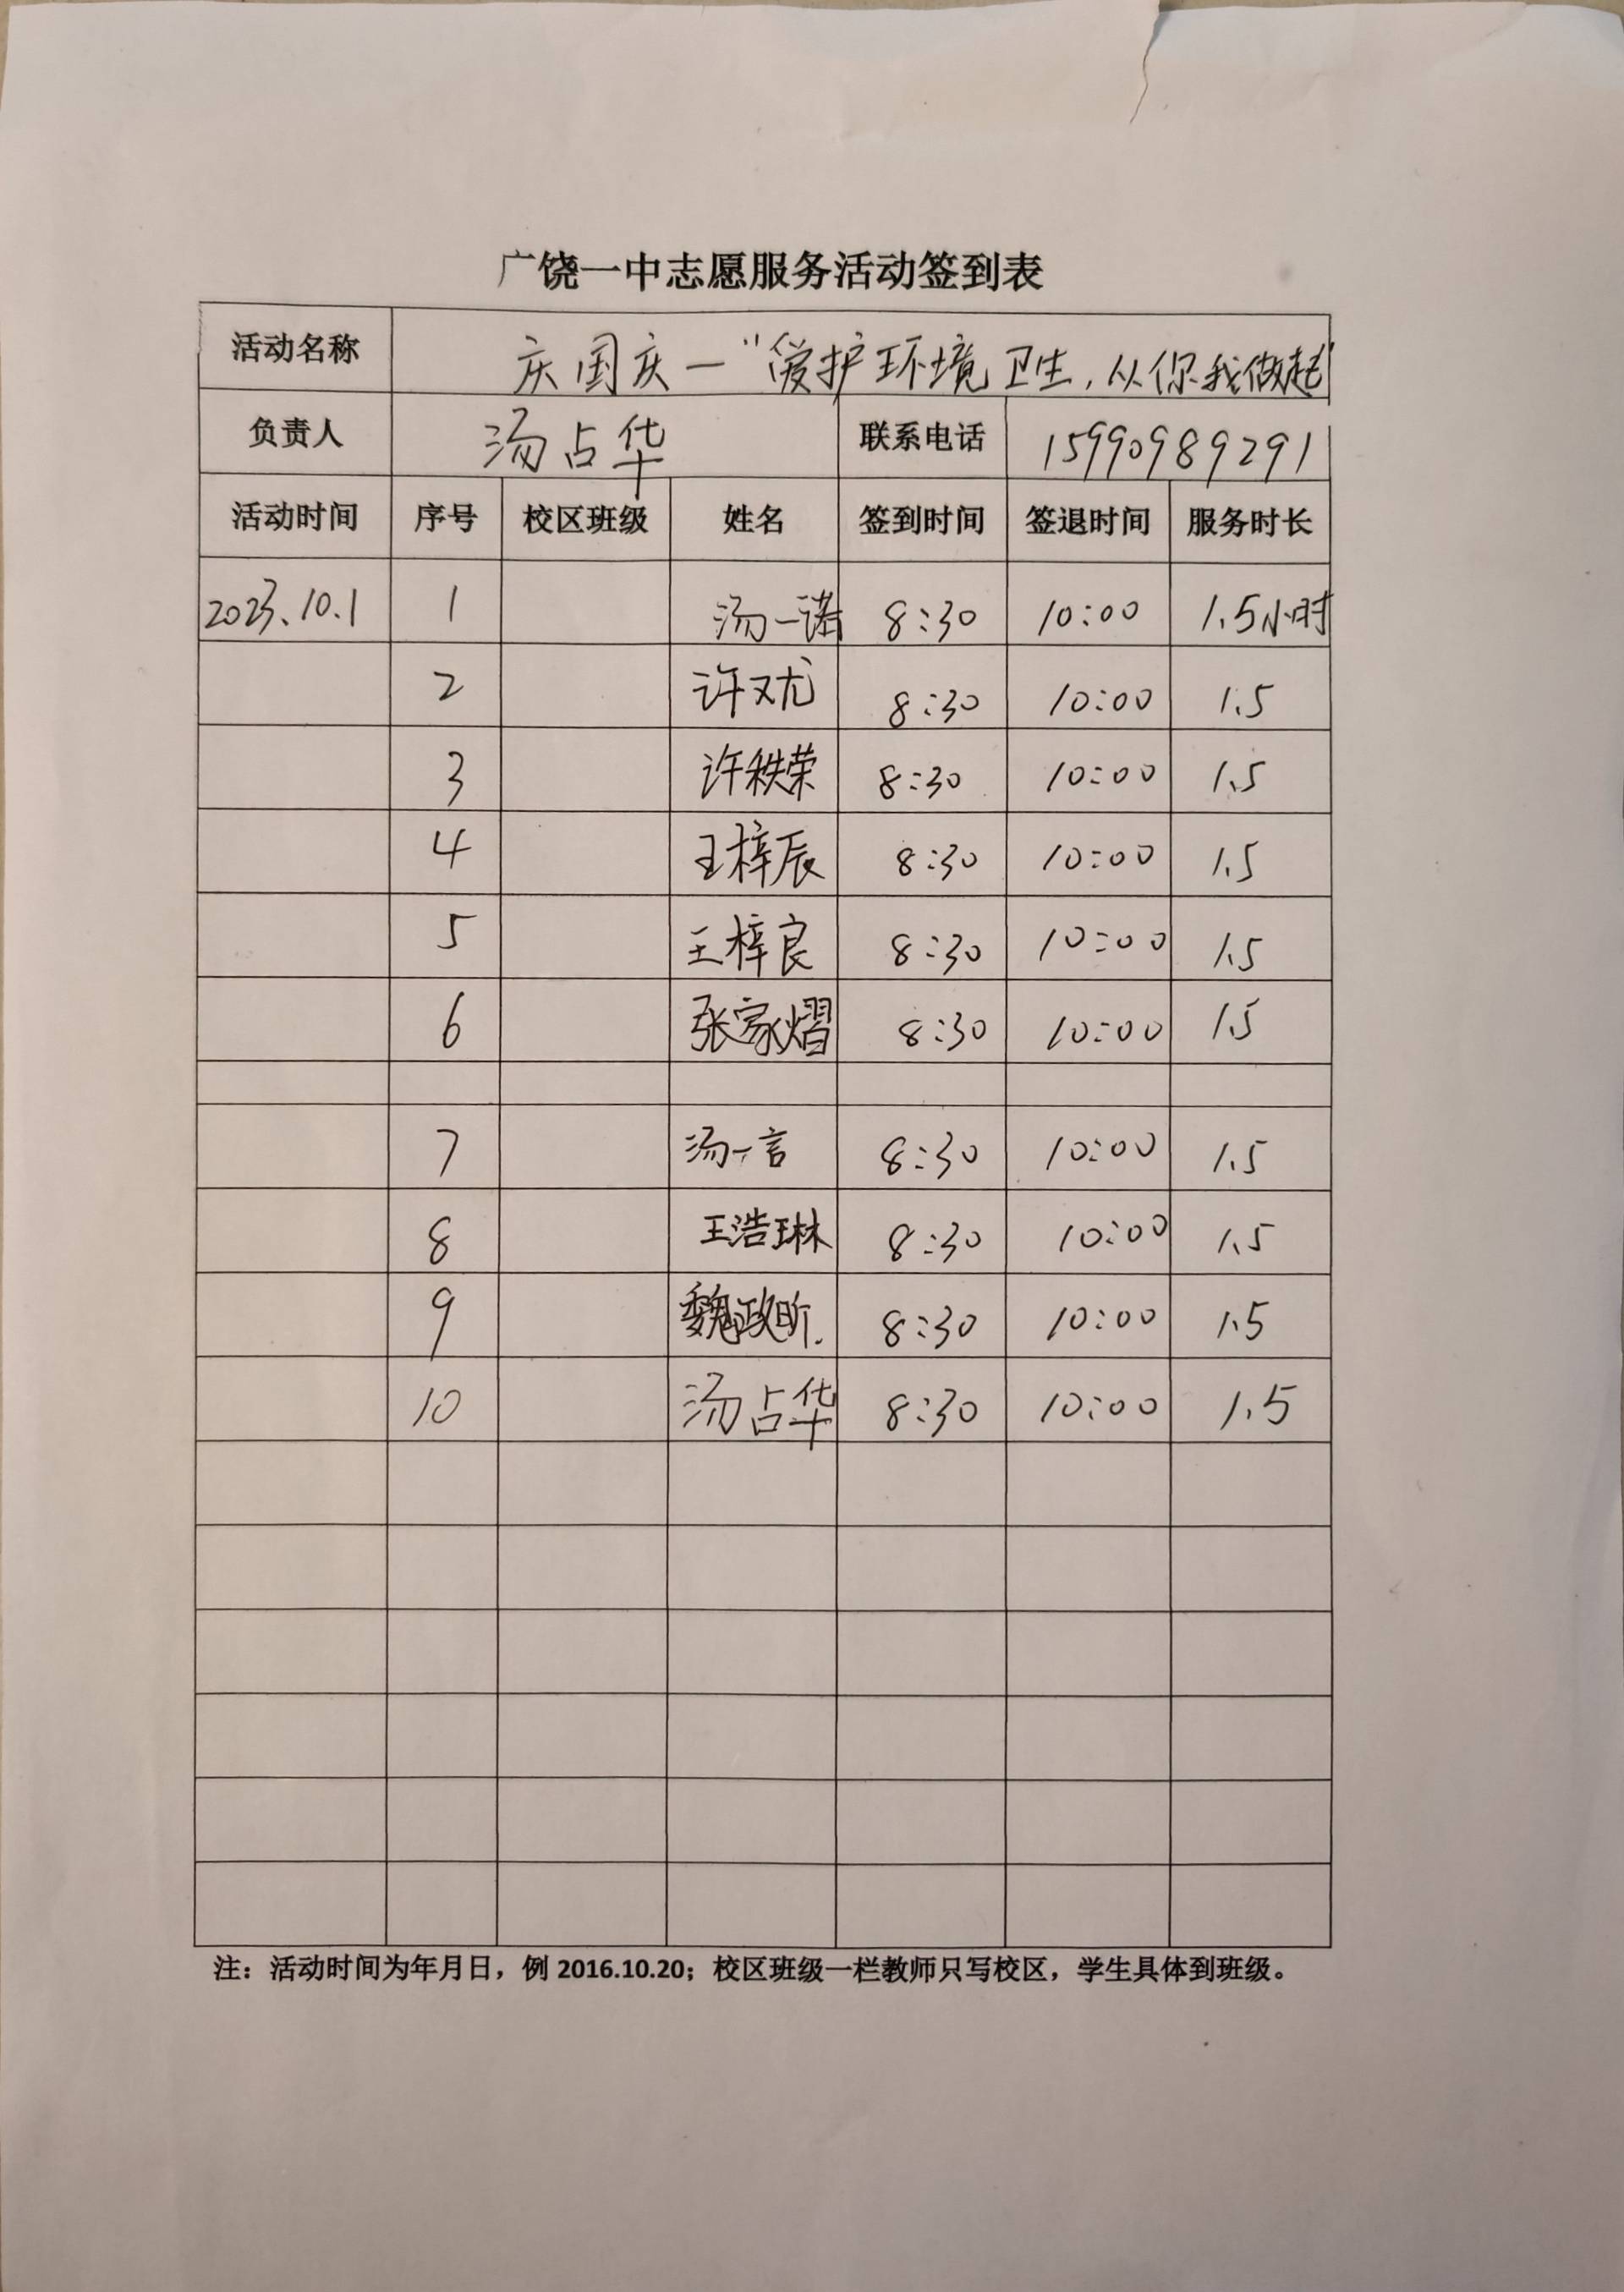 广饶一中志愿服务活动签到表
活动名称 庆国庆一"爱护环境卫生,从你我做起"
负责人 汤占华 联系电话 15990989291
活动时间 序号 校区班级 姓名 签到时间 签退时间 服务时长
2023.10.1 1 汤一诺 8:30 10:00 1.5小时
2 许又尤 8:30 10:00 1.5
3 许秩荣 8:30 10:00 1.5
4 王梓辰 8:30 10:00 1.5
5 王梓良 8:30 10:00 1.5
6 张家熠 8:30 10:00 1.5
7 汤一言 8:30 10:00 1.5
8 王浩琳 8:30 10:00 1.5
9 魏政昕. 8:30 10:00 1.5
10 汤占华 8:30 10:00 1.5
注：活动时间为年月日，例 2016.10.20；校区班级一栏教师只写校区，学生具体到班级。